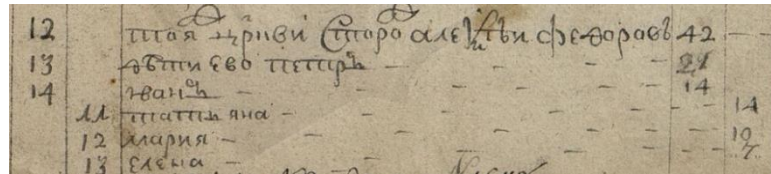 12 тоя церкви Сторож алеѯѣи федоровъ 42
13 дѣти ево петръ 21
14 иванъ 14
11 татияна 14
12 мария
13 елена 7